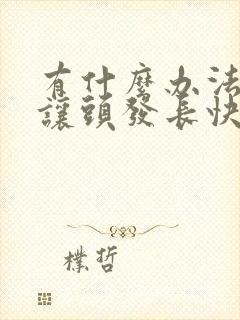 有什麼办法
讓頭發長快
樸哲